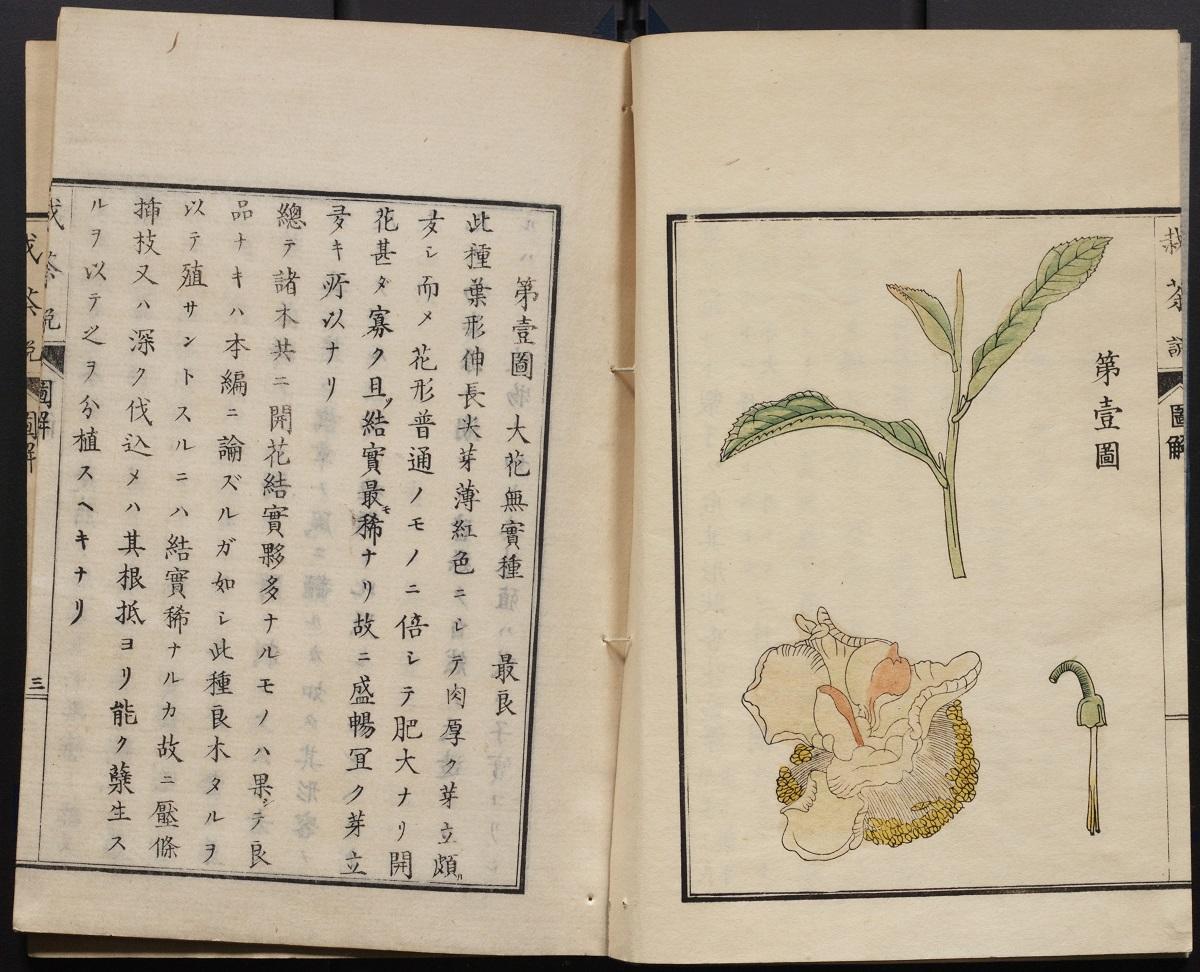 栽茶説
圖解
第壹圖
第壹圖 大花無實種 最良
此種葉形伸長尖芽薄紅色ニシテ肉厚ク芽立頗ル
多シ而メ花形普通ノモノニ倍シテ肥大ナリ開
花甚ダ寡ク且ツ結實最モ稀ナリ故ニ盛暢冝ク芽立
多キ所以ナリ
總テ諸木共ニ開花結實夥多ナルモノハ果シテ良
品ナキハ本編ニ論ズルガ如シ此種良木タルヲ
以テ殖サントスルニハ結實稀ナルカ故ニ壓條
揷枝又ハ深ク伐込メハ其根抵ヨリ能ク蘖生ス
ルヲ以テ之ヲ分植スヘキナリ
栽茶説
圖解
三